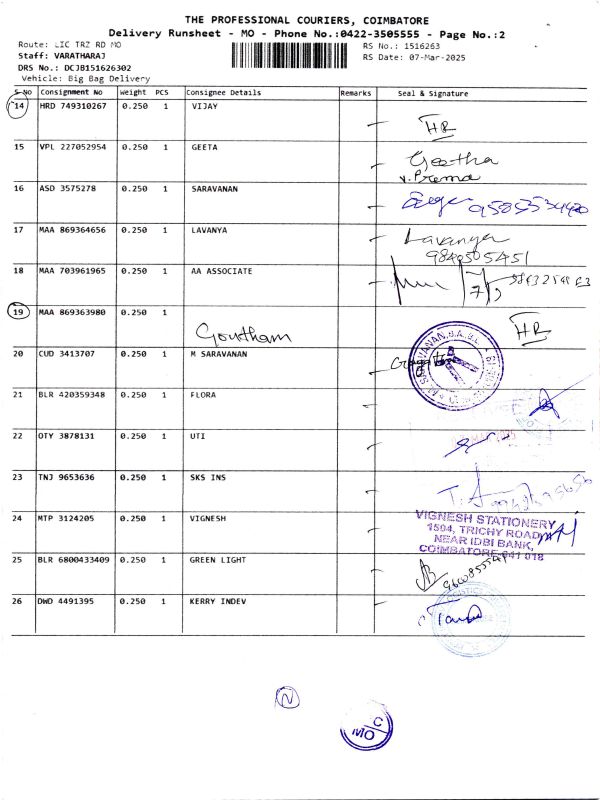 THE PROFESSIONAL COURIERS, COIMBATORE
Delivery Runsheet - MO - Phone No.:0422-3505555 - Page No.:2
Route: LIC TRZ RD MO
RS No.: 1516263
Staff: VARATHARAJ
RS Date: 07-Mar-2025
DRS No.: DCJB151626302
Vehicle: Big Bag Delivery
S No Consignment No Weight PCS Consignee Details Remarks Seal & Signature
14 HRD 749310267 0.250 1 VIJAY
HR
15 VPL 227052954 0.250 1 GEETA
Geetha
V. Prema
16 ASD 3575278 0.250 1 SARAVANAN
17 MAA 869364656 0.250 1 LAVANYA
Lavanya
9840505451
18 MAA 703961965 0.250 1 AA ASSOCIATE
19 MAA 869363980 0.250 1
Goutham
HR
20 CUD 3413707 0.250 1 M SARAVANAN
21 BLR 420359348 0.250 1 FLORA
22 OTY 3878131 0.250 1 UTI
23 TNJ 9653636 0.250 1 SKS INS
24 MTP 3124205 0.250 1 VIGNESH
VIGNESH STATIONERY
1504, TRICHY ROAD
NEAR IDBI BANK,
COIMBATORE-641 018
25 BLR 6800433409 0.250 1 GREEN LIGHT
26 DWD 4491395 0.250 1 KERRY INDEV
N
C
MO